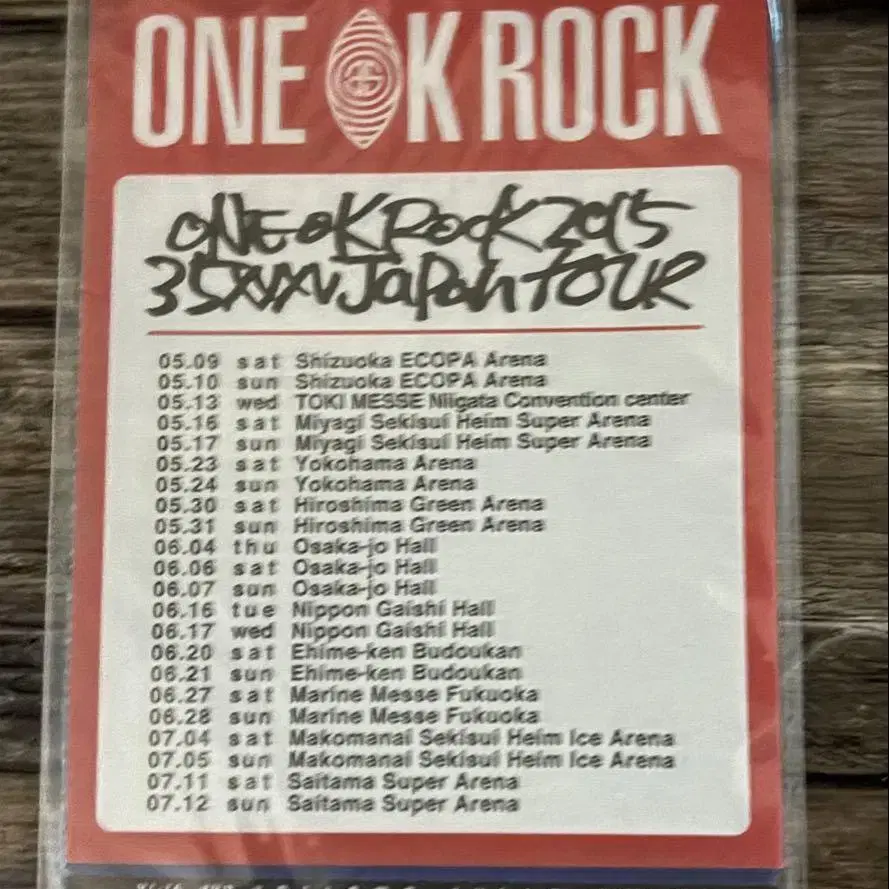 ONE OK ROCK
ONE OK ROCK 2015
35xxxv Japan TOUR
05.09 sat Shizuoka ECOPA Arena
05.10 sun Shizuoka ECOPA Arena
05.13 wed TOKI MESSE Niigata Convention center
05.16 sat Miyagi Sekisui Heim Super Arena
05.17 sun Miyagi Sekisui Heim Super Arena
05.23 sat Yokohama Arena
05.24 sun Yokohama Arena
05.30 sat Hiroshima Green Arena
05.31 sun Hiroshima Green Arena
06.04 thu Osaka-jo Hall
06.06 sat Osaka-jo Hall
06.07 sun Osaka-jo Hall
06.16 tue Nippon Gaishi Hall
06.17 wed Nippon Gaishi Hall
06.20 sat Ehime-ken Budoukan
06.21 sun Ehime-ken Budoukan
06.27 sat Marine Messe Fukuoka
06.28 sun Marine Messe Fukuoka
07.04 sat Makomanai Sekisui Heim Ice Arena
07.05 sun Makomanai Sekisui Heim Ice Arena
07.11 sat Saitama Super Arena
07.12 sun Saitama Super Arena